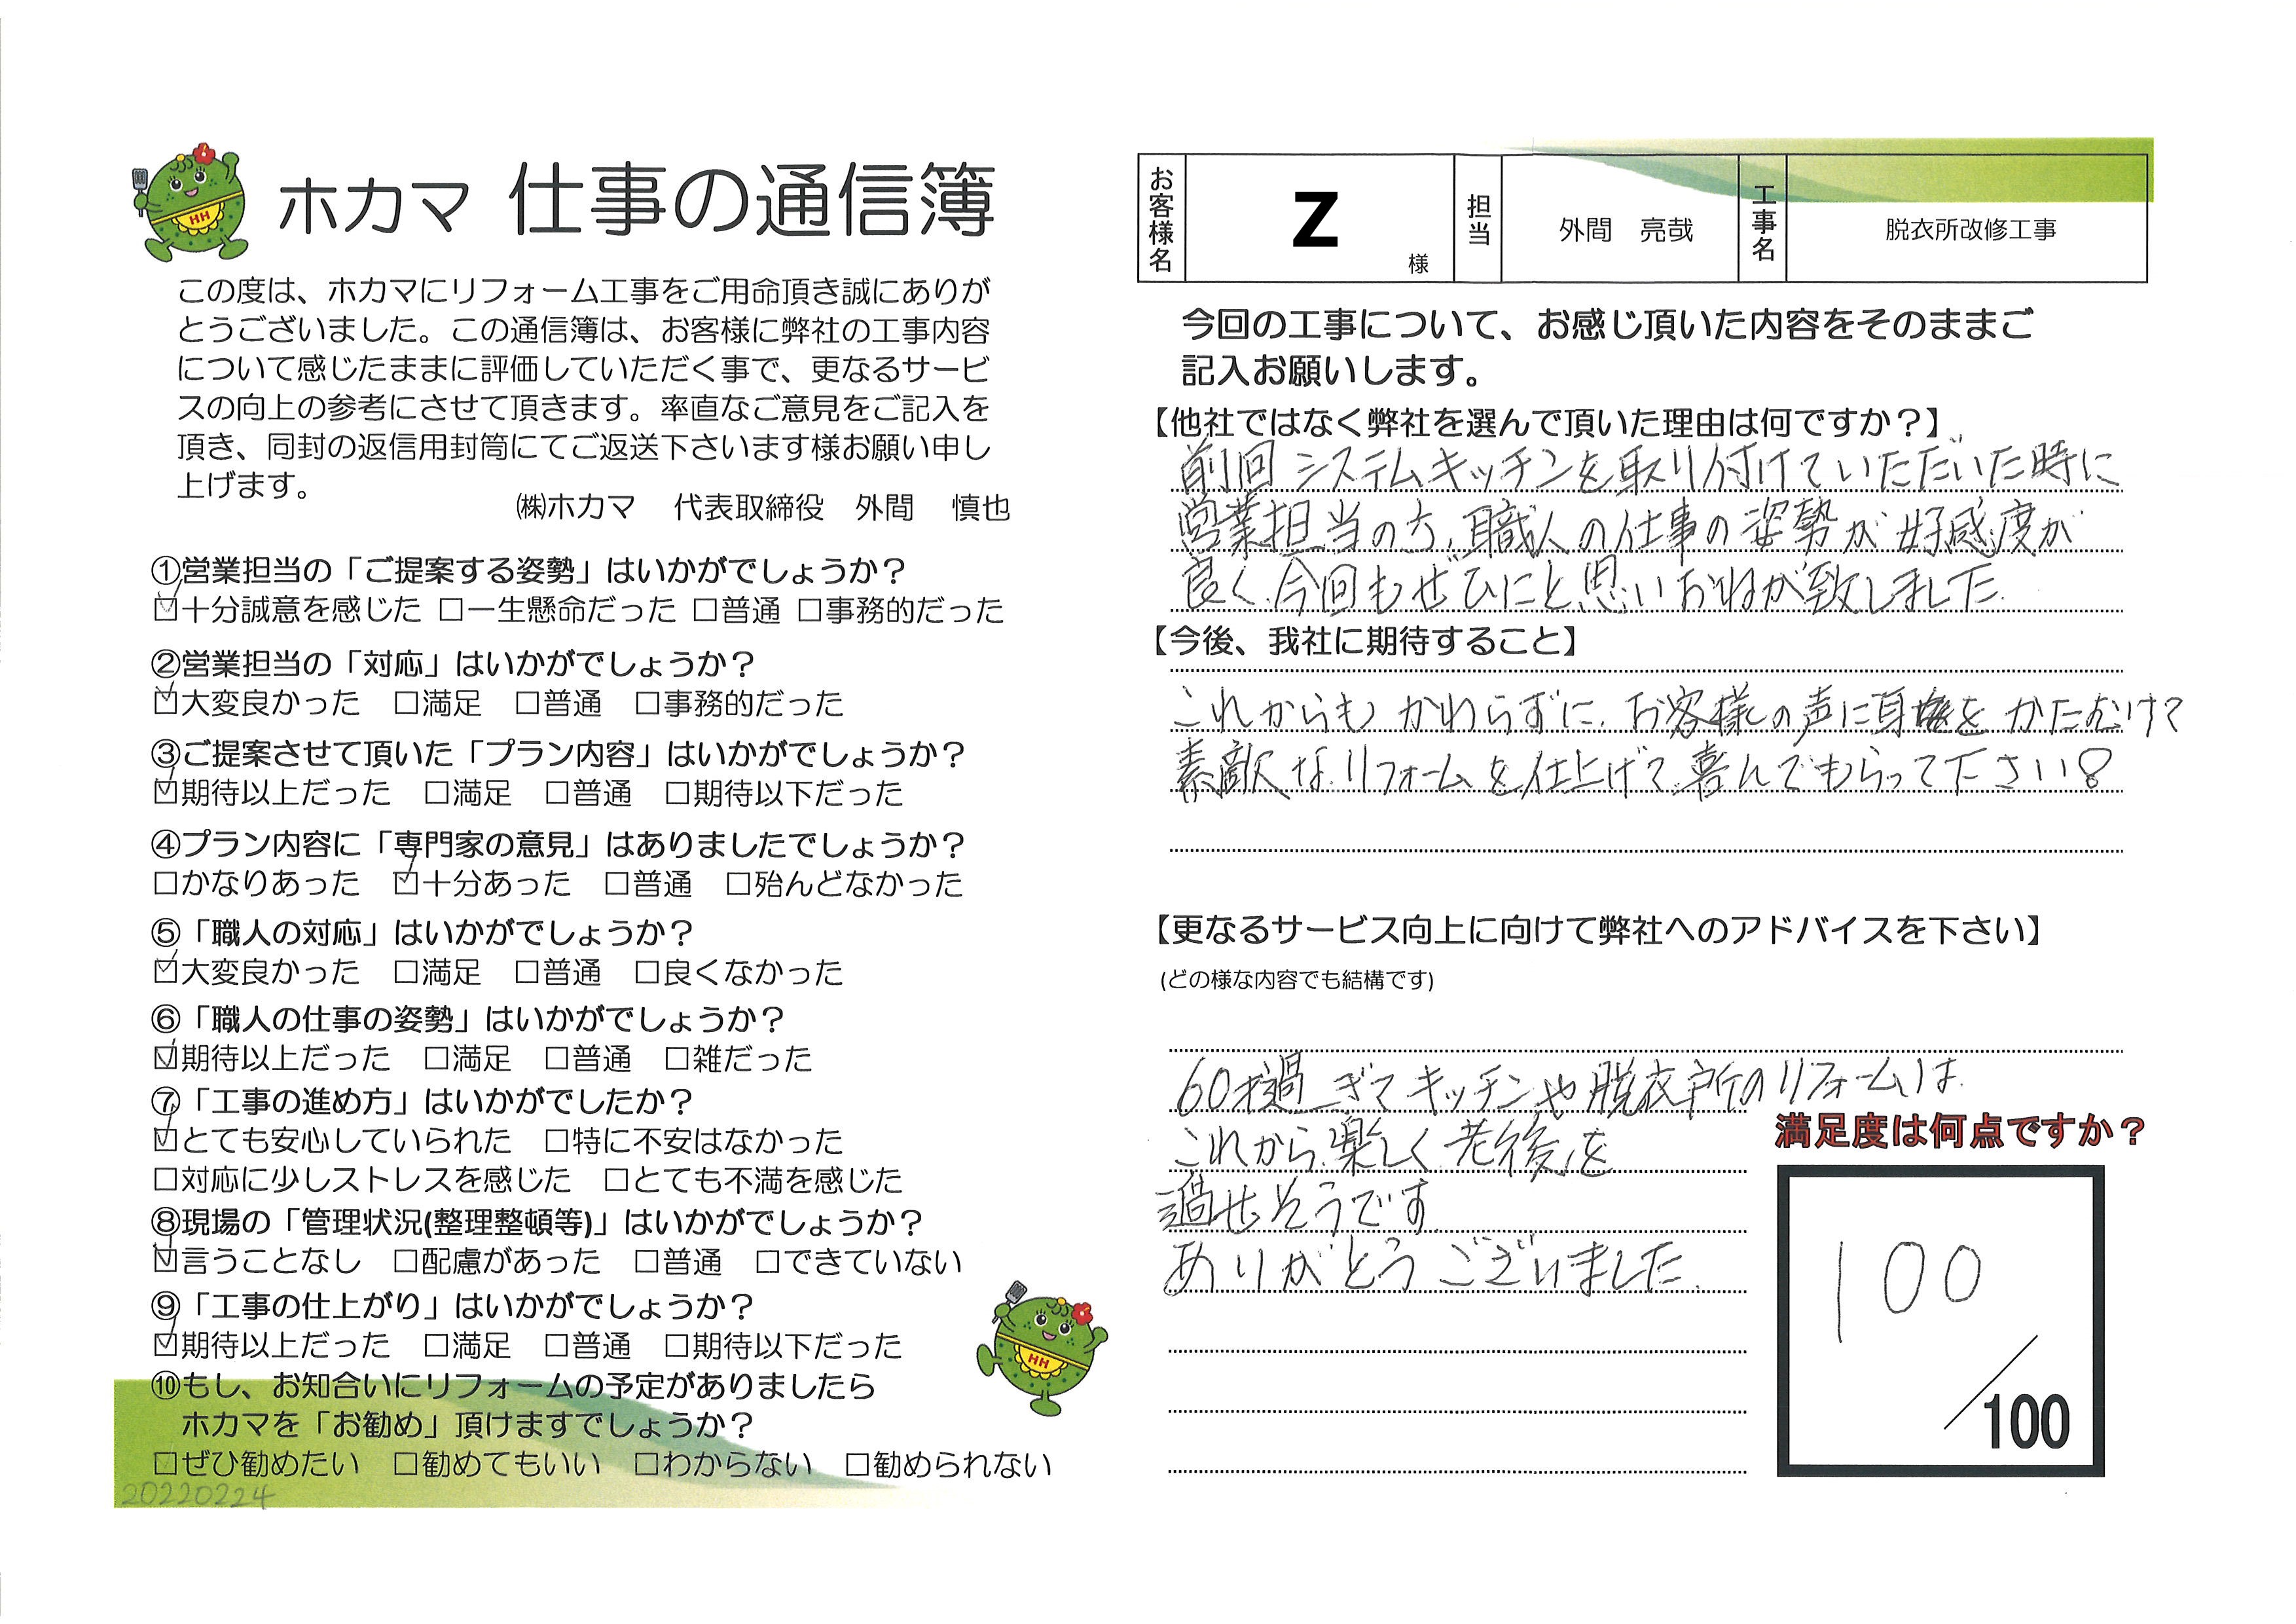 ホカマ 仕事の通信簿
この度は、ホカマにリフォーム工事をご用命頂き誠にありが
とうございました。この通信簿は、お客様に弊社の工事内容
について感じたままに評価していただく事で、更なるサービ
スの向上の参考にさせて頂きます。率直なご意見をご記入を
頂き、同封の返信用封筒にてご返送下さいます様お願い申し
上げます。
㈱ホカマ 代表取締役 外間 慎也
①営業担当の「ご提案する姿勢」はいかがでしょうか？
☑十分誠意を感じた □一生懸命だった □普通 □事務的だった
②営業担当の「対応」はいかがでしょうか？
☑大変良かった □満足 □普通 □事務的だった
③ご提案させて頂いた「プラン内容」はいかがでしょうか？
☑期待以上だった □満足 □普通 □期待以下だった
④プラン内容に「専門家の意見」はありましたでしょうか？
□かなりあった ☑十分あった □普通 □殆んどなかった
⑤「職人の対応」はいかがでしょうか？
☑大変良かった □満足 □普通 □良くなかった
⑥「職人の仕事の姿勢」はいかがでしょうか？
☑期待以上だった □満足 □普通 □雑だった
⑦「工事の進め方」はいかがでしたか？
☑とても安心していられた □特に不安はなかった
□対応に少しストレスを感じた □とても不満を感じた
⑧現場の「管理状況(整理整頓等)」はいかがでしょうか？
☑言うことなし □配慮があった □普通 □できていない
⑨「工事の仕上がり」はいかがでしょうか？
☑期待以上だった □満足 □普通 □期待以下だった
⑩もし、お知合いにリフォームの予定がありましたら
ホカマを「お勧め」頂けますでしょうか？
□ぜひ勧めたい □勧めてもいい □わからない □勧められない
20220224
HH
HH
お客様名 Z 様 担当 外間 亮哉 工事名 脱衣所改修工事
今回の工事について、お感じ頂いた内容をそのままご
記入お願いします。
【他社ではなく弊社を選んで頂いた理由は何ですか？】
前回システムキッチンを取り付けていただいた時に
営業担当の方、職人の仕事の姿勢が好感度が
良く、今回もぜひにと思いおねが致しました.
【今後、我社に期待すること】
これからもかわらずに、お客様の声に耳をかたむけて
素敵なリフォームを仕上げて喜んでもらって下さい!
【更なるサービス向上に向けて弊社へのアドバイスを下さい】
(どの様な内容でも結構です)
60才過ぎてキッチンや脱衣所のリフォームは、
これから楽しく老後を
過せそうです
ありがとうございました.
満足度は何点ですか？
100
/100